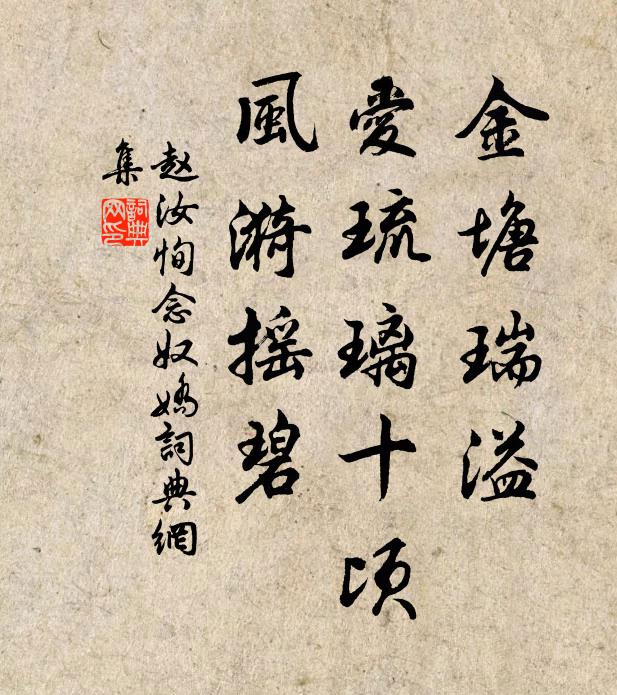 金塘瑞溢
愛琉璃十頃
風漪摇碧
赵汝恂念奴嬌詞典網
集
詞典
网印